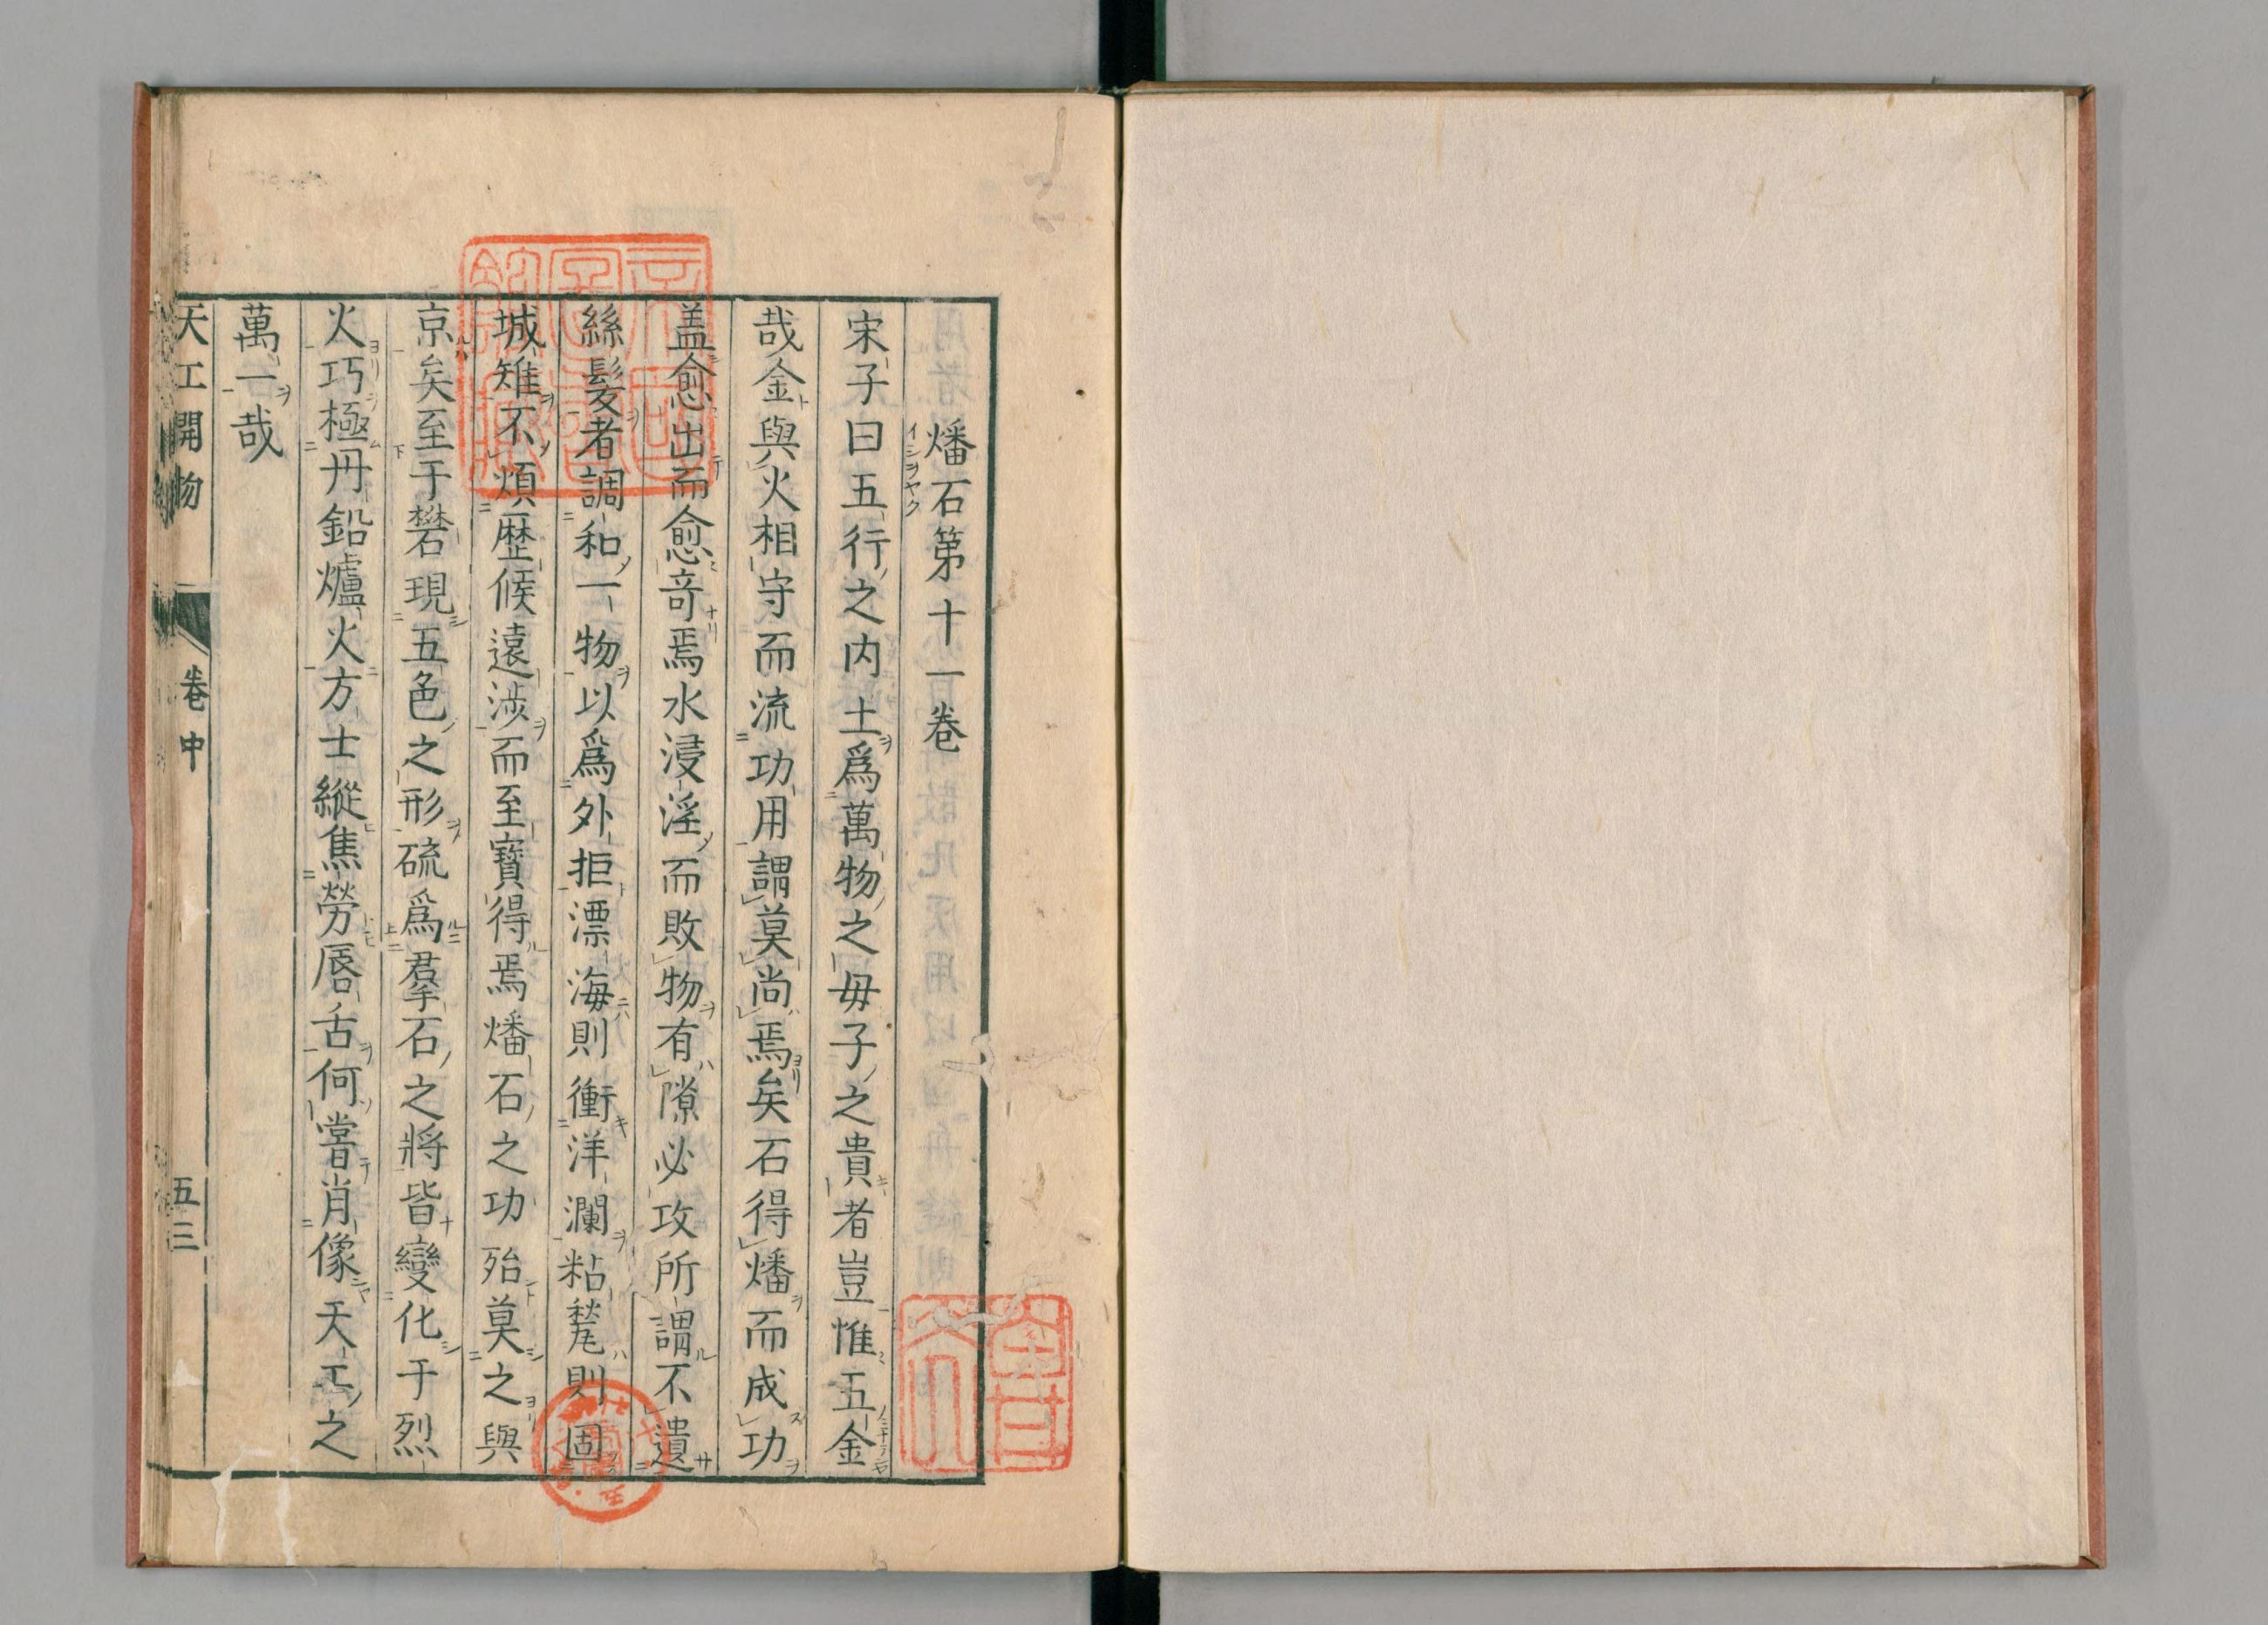 燔石第十一卷
イシヲヤク
宋子曰五行之内土爲萬物之毋子之貴者豈惟五金
哉金與火相守而流功用謂莫尚焉矣石得燔而成功
盖愈出而愈竒焉水浸淫而敗物有隙必攻所謂不遺
絲髮者調和一物以爲外拒漂海則衝洋瀾粘甃則固
城雉不煩歷候遠涉而至寶得焉燔石之功殆莫之與
京矣至于礬石現五色之形硫爲羣石之將皆變化于烈
火巧極丹鉛爐火方士縱焦勞唇舌何嘗肖像天工之
萬一哉
天工開物 卷中 五三